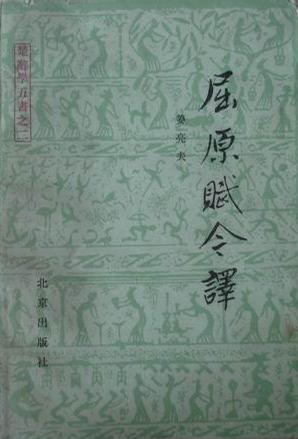 屈原賦今譯
姜亮夫
楚辭學五書之一
北京出版社